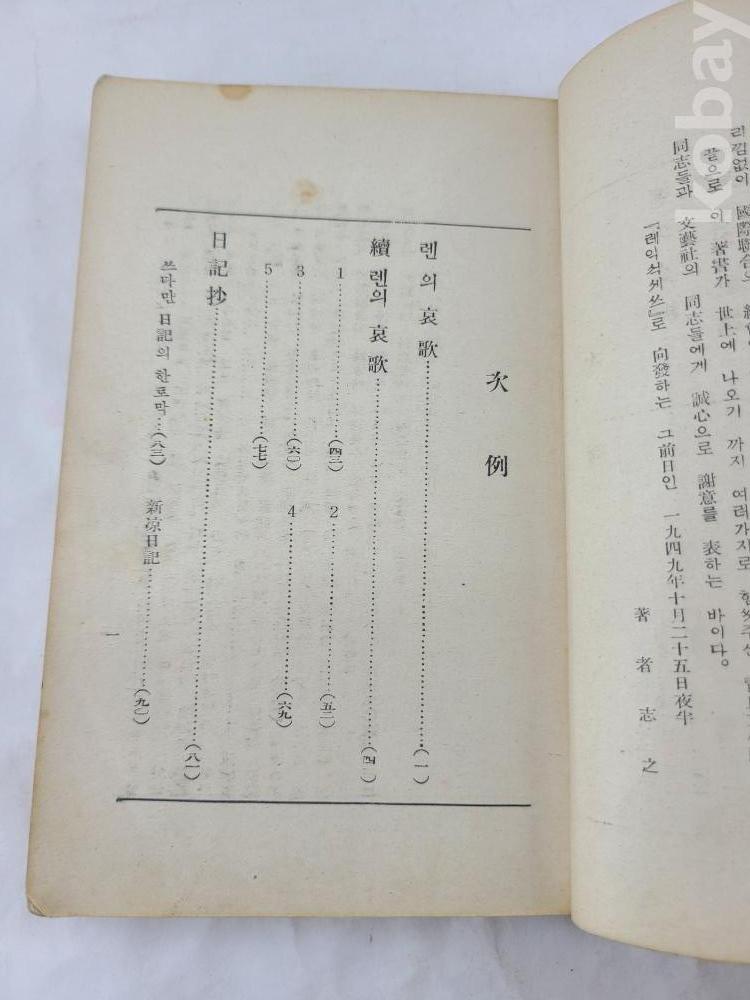 리낌없이 國際聯合의
끝으로 이 著書가 世上에 나오기 까지 여러가지로 힘써주신
同志들과 文藝社의 同志들에게 誠心으로 謝意를 表하는 바이다。
로 向發하는 그 前日인 一九四九年十月二十五日夜半
著者志之
次例
렌의 哀歌……(一)
續 렌의 哀歌……(四
1……(四三) 2……(五二)
3……(六〇) 4……(六九)
5……(七七)
日記抄……(八一)
쓰다만 日記의 한토막…(八三) 新凉日記……(九〇)
一
kobay